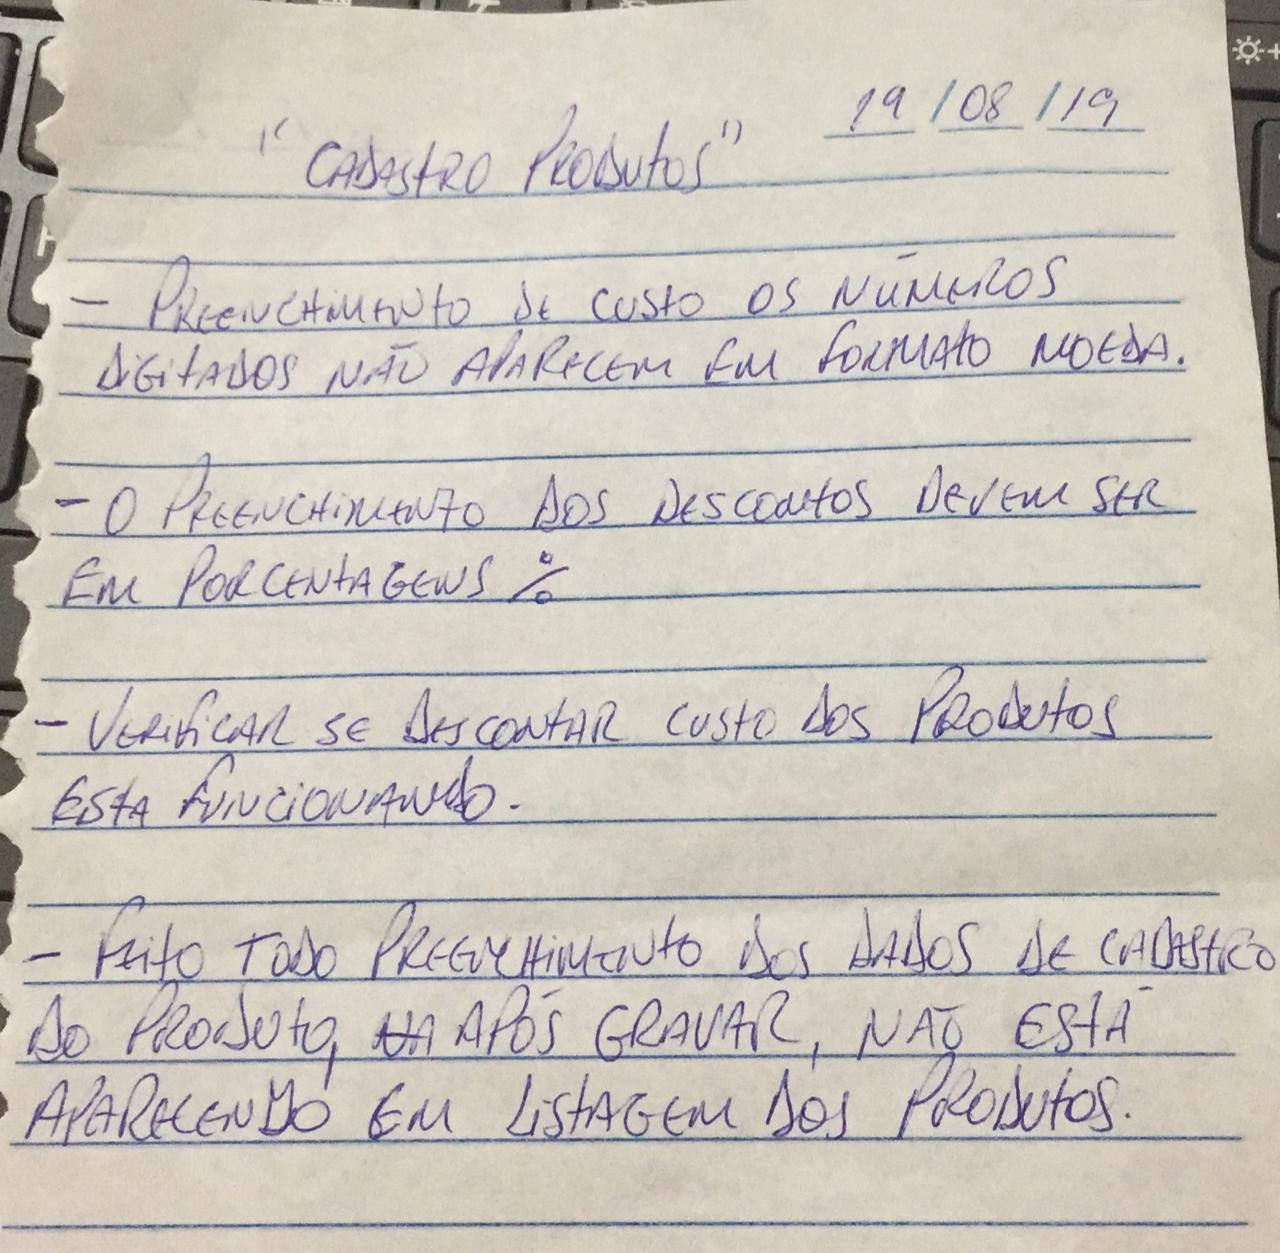 19/08/19
"CADASTRO PRODUTOS"
- PREENCHIMENTO DE CUSTO OS NÚMEROS
DIGITADOS NÃO APARECEM EM FORMATO MOEDA.
- O PREENCHIMENTO DOS DESCONTOS DEVEM SER
EM PORCENTAGENS %
- VERIFICAR SE DESCONTAR CUSTO DOS PRODUTOS
ESTA FUNCIONANDO.
- FEITO TODO PREENCHIMENTO DOS DADOS DE CADASTRO
DO PRODUTO, APÓS GRAVAR, NÃO ESTÁ
APARECENDO EM LISTAGEM DOS PRODUTOS.